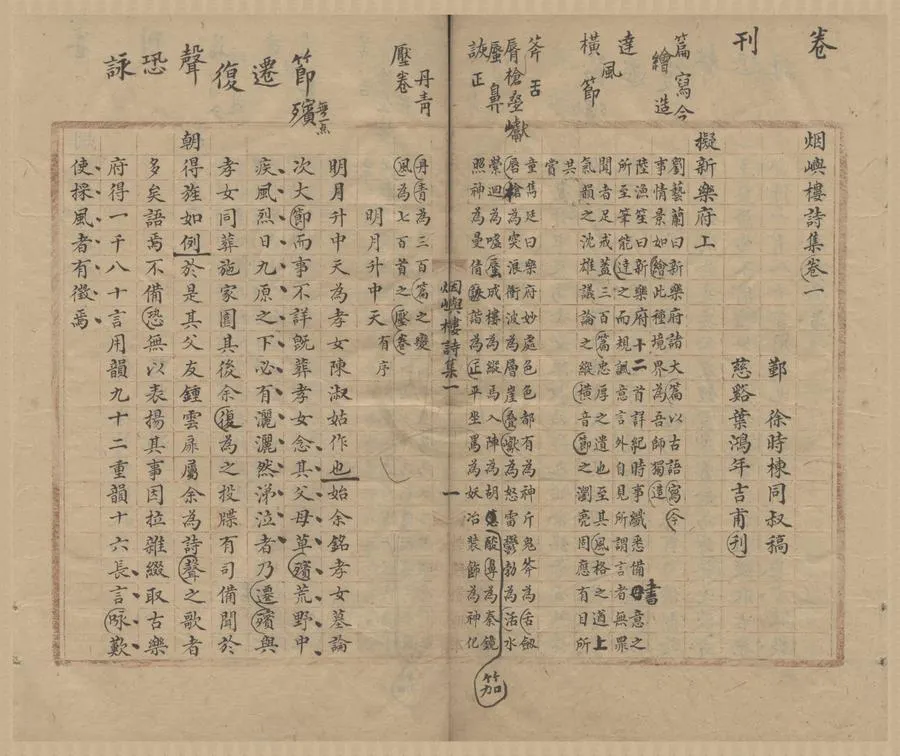 卷
刊
篇寫今
繪造
達風
橫節
斧舌
脣槍壘巘
蜃鼻
詼正
丹青
壓卷
節
殯無一点
遷
復
聲
恐
詠
烟嶼樓詩集卷一
鄞 徐時棟同叔稿
慈谿葉鴻年吉甫刊
擬新樂府上
劉藝蘭曰新樂府諸大篇以古語寫今
事情景如繪此種境界為吾師獨造
陸漁笙曰新樂府十二首詳紀時事纖悉備書意之
所至筆能達之而規諷意言外自見所謂言者無罪
聞者足戒蓋三百篇忠厚之遺也至其風格之遒上
氣韻之沈雄議論之縱橫音節之瀏亮固應有目所
共賞
童雋廷曰樂府妙處色色都有為神斤鬼斧為舌劍
唇槍為突浪衝波為層崖疊巘為怒雷鬱勃為活水
縈迴為噓蜃成樓為縱馬入陣為胡笳酸鼻為秦鏡
照神為曼倩詼諧為正平坐罵為妖冶裝飾為神化
笳
烟嶼樓詩集一
一
丹青為三百篇之變
風為七百首之壓卷
明月升中天有序
明月升中天為孝女陳淑姑作也始余銘孝女墓論
次大節而事不詳既葬孝女念其父母草殯荒野中
疾風烈日九原之下必有灑灑然涕泣者乃遷殯與
孝女同葬施家園其後余復為之投牒有司備聞於
朝得旌如例於是其父友鍾雲扉屬余為詩聲之歌者
多矣語焉不備恐無以表揚其事因拉雜綴取古樂
府得一千八十言用韻九十二重韻十六長言詠歎
使採風者有徵焉